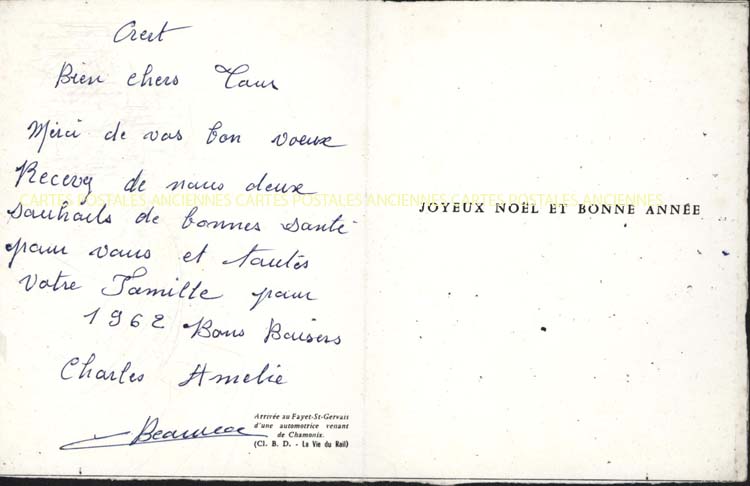 Crest
Bien chers Tous
Merci de vos bon voeux
Recevez de nous deux
souhaits de bonnes santé
pour vous et toutes
votre Famille pour
1962 Bons Baisers
Charles Amelie
Arrivée au Fayet-St-Gervais
d'une automotrice venant
de Chamonix.
(Cl. B. D. - La Vie du Rail)
CARTES POSTALES ANCIENNES CARTES POSTALES ANCIENNES CARTES POSTALES ANCIENNES
JOYEUX NOËL ET BONNE ANNÉE